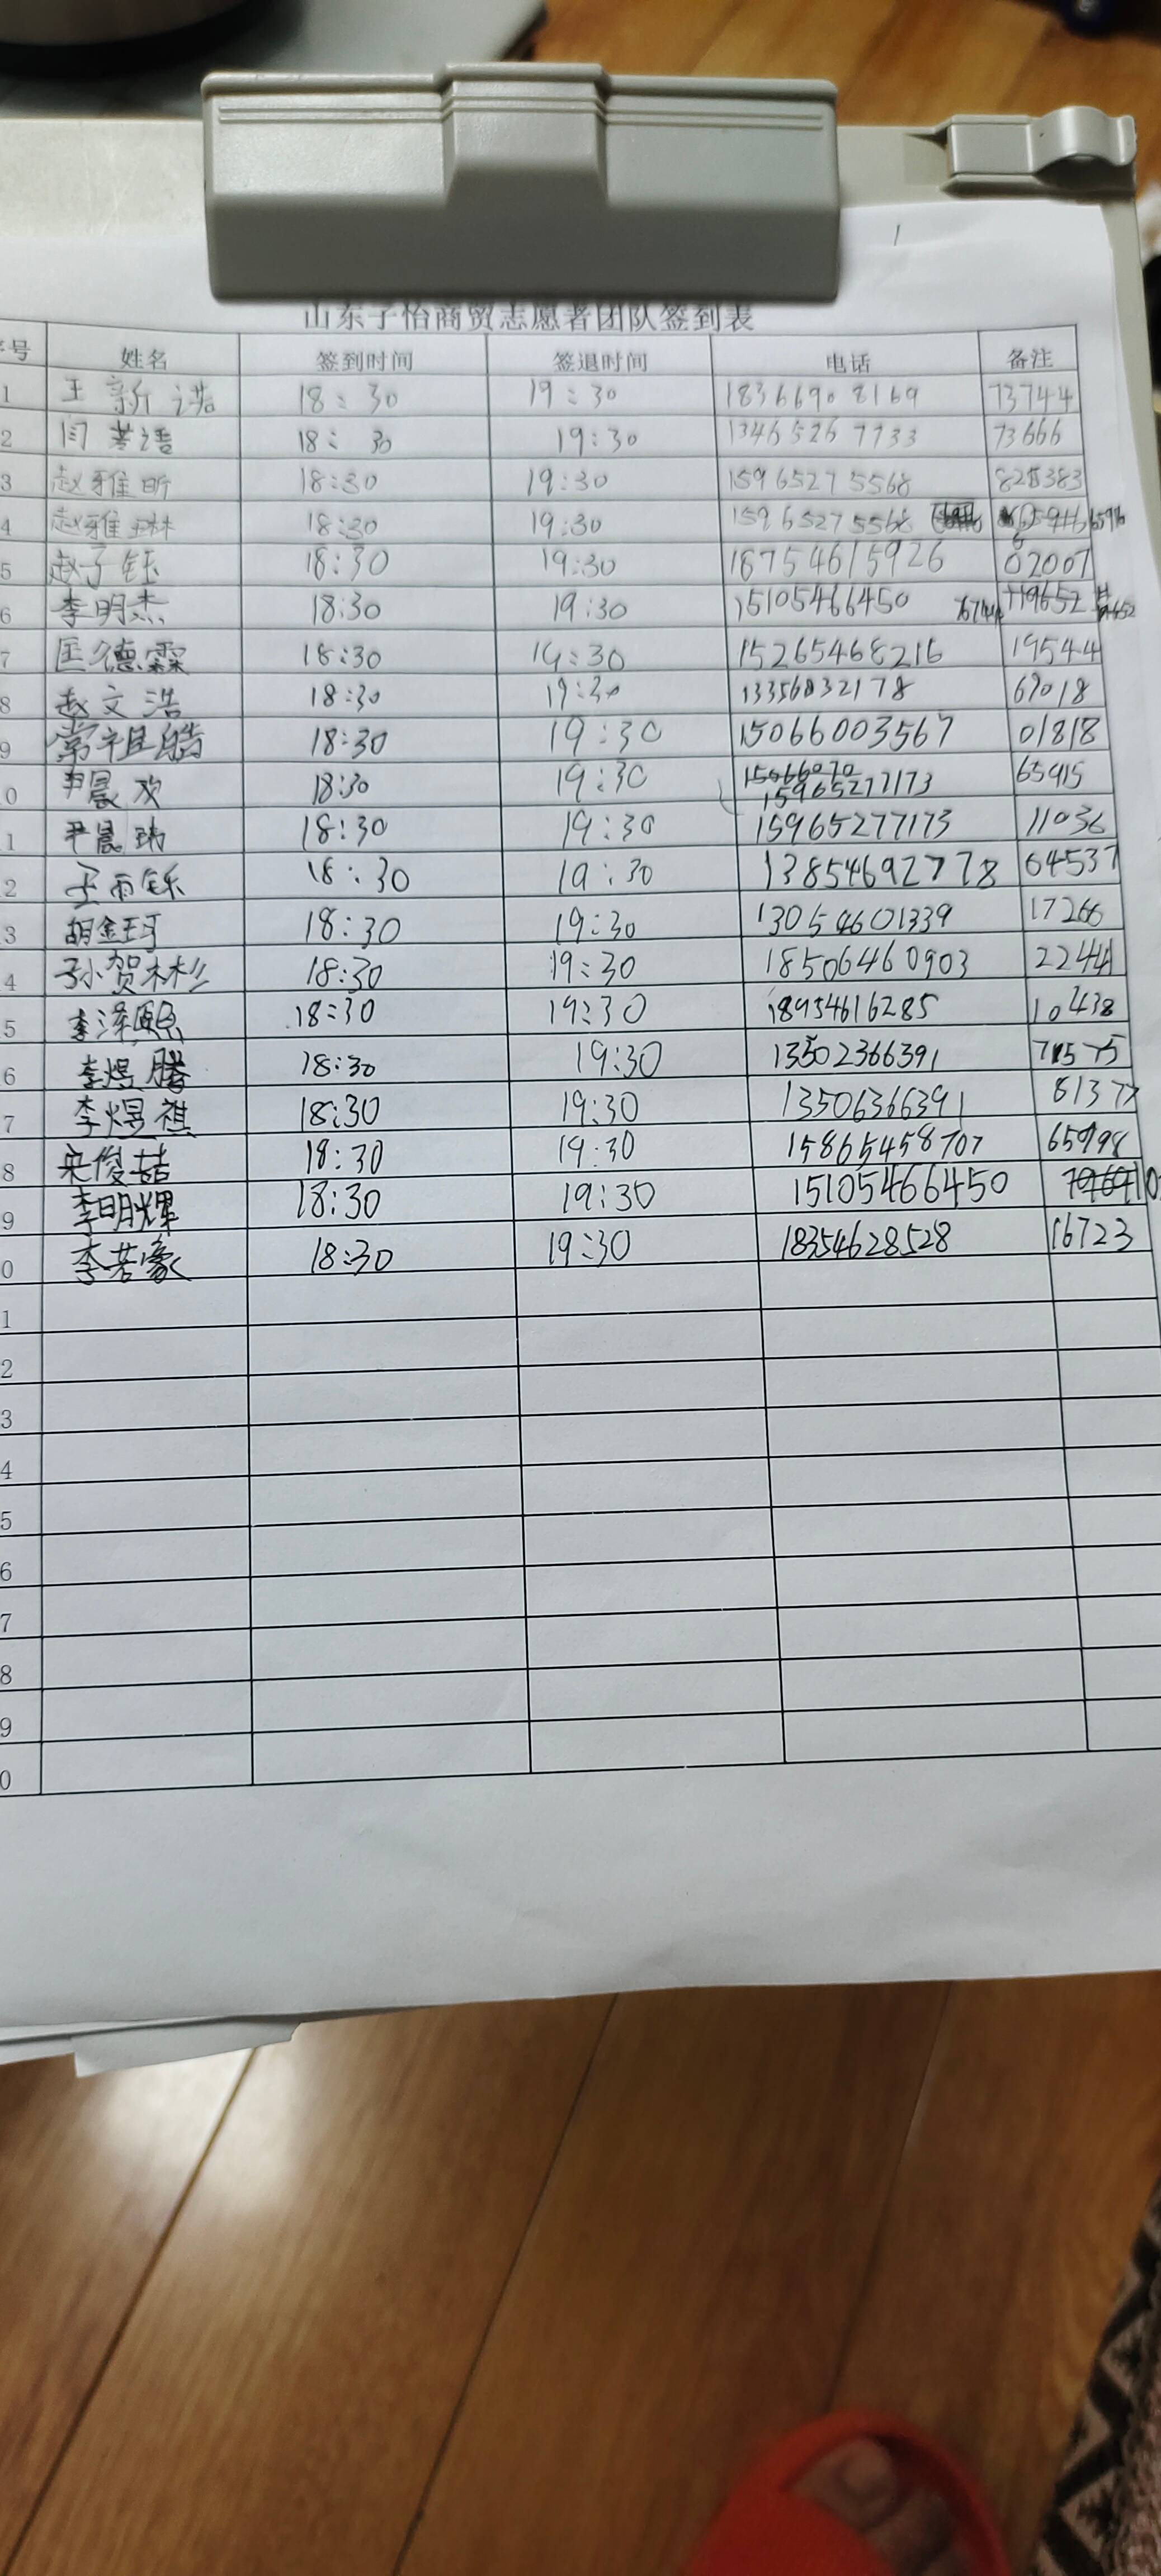 1
山东子怡商贸志愿者团队签到表
号 姓名 签到时间 签退时间 电话 备注
1 王新诺 18:30 19:30 18366908169 73744
2 闫 语 18:30 19:30 13465267733 73666
3 赵雅昕 18:30 19:30 15965275568
4 赵雅琳 18:30 19:30 15965275568
5 赵子钰 18:30 19:30 18754615926 02007
6 李明杰 18:30 19:30 15105466450
7 匡德霖 18:30 19:30 15265468216 19544
8 赵文浩 18:30 19:30 13356832178 69018
9 常祖皓 18:30 19:30 15066003567 01818
0 尹晨 18:30 19:30 15965277173 65915
1 尹晨 18:30 19:30 15965277173 11036
2 王雨铄 18:30 19:30 13854692778 64537
3 胡金珂 18:30 19:30 13054601339 17266
4 孙贺杉 18:30 19:30 18506460903 22441
5 李泽熙 18:30 19:30 18954616285 10438
6 李煜腾 18:30 19:30 13502366391
7 李煜祺 18:30 19:30 13506366391 81377
8 宋俊喆 18:30 19:30 15865458707 65998
9 李明辉 18:30 19:30 15105466450
0 李若豪 18:30 19:30 18354628528 16723
1
2
3
4
5
6
7
8
9
0